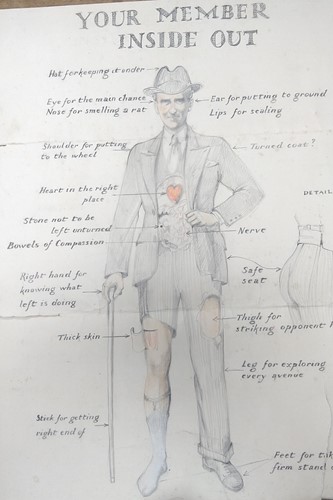 YOUR MEMBER
INSIDE OUT
Hat for keeping it under
Eye for the main chance
Nose for smelling a rat
Ear for putting to ground
Lips for sealing
Shoulder for putting
to the wheel
Turned coat?
Heart in the right
place
DETAIL
Stone not to be
left unturned
Nerve
Bowels of Compassion
Right hand for
knowing what
left is doing
Safe
seat
Thigh for
striking opponent
Thick skin
Leg for exploring
every avenue
Stick for getting
right end of
Feet for
firm stand